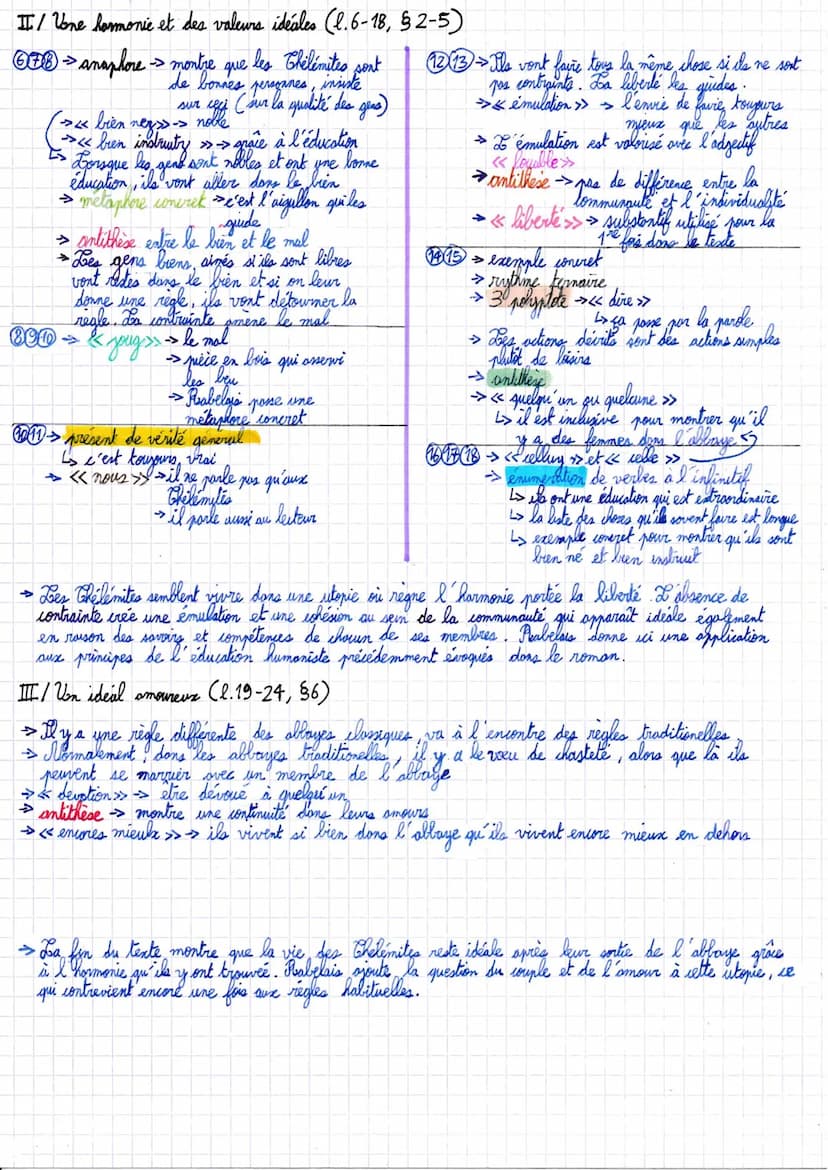 II/ Une harmonie et des valeurs idéales (l.6-18, §2-5)
⑥⑦⑧ → anaphore → montre que les Thélémites sont
de bonnes personnes, insiste
sur ceci (sur la qualité des gens)
→ « bien nez » → noble
→ « bien instruitz » → grâce à l'éducation
↳ Lorsque les gens sont nobles et ont une bonne
éducation, ils vont aller dans le bien
→ métaphore concret → c'est l'aiguillon qui les
guide
→ antithèse entre le bien et le mal
→ Les gens biens, aimés s'ils sont libres
vont restes dans le bien et si on leur
donne une règle, ils vont détourner la
règle. La contrainte amène le mal
⑧⑨⑩ → « joug » → le mal
→ pièce en bois qui asservi
les
→ Rabelais pose une
métaphore concret
⑩⑪ → présent de vérité général
↳ c'est toujours vrai
→ « nous » → il ne parle pas qu'aux
Thélémytes
→ il parle aussi au lecteur
⑫⑬ → Ils vont faire tous la même chose si ils ne sont
pas contraints. La liberté les guides.
→ « émulation » → l'envie de faire toujours
mieux que les autres
→ L'émulation est valorisé avec l'adjectif
« louable »
→ antithèse → pas de différence entre la
communauté et l'individualité
→ « liberté » → substantif utilisé pour la
1re fois dans le texte
⑭⑮ → exemple concret
→ rythme ternaire
→ 3 polyptote → « dire »
↳ ça passe par la parole
→ Les actions décrits sont des actions simples
plutôt de loisirs
→ antithèse
→ « quelqu'un ou quelcune »
↳ il est inclusive pour montrer qu'il
y a des femmes dans l'abbaye
⑯⑰⑱ → « celluy » et « celle »
→ énumération de verbes à l'infinitif
↳ ils ont une éducation qui est extraordinaire
↳ la liste des choses qu'ils savent faire est longue
↳ exemple concret pour montrer qu'ils sont
bien né et bien instruit
→ Les Thélémites semblent vivre dans une utopie où règne l'harmonie portée la liberté. L'absence de
contrainte crée une émulation et une cohésion au sein de la communauté qui apparaît idéale également
en raison des savoirs et compétences de chacun de ses membres. Rabelais donne ici une application
aux principes de l'éducation humaniste précédemment évoqués dans le roman.
III/ Un idéal amoureux (l.19-24, §6)
→ Il y a une règle différente des abbayes classiques, va à l'encontre des règles traditionnelles
→ Normalement, dans les abbayes traditionnelles, il y a le vœu de chasteté, alors que là ils
peuvent se marquer avec un membre de l'abbaye
→ « devotion » → etre dévoué à quelqu'un
→ antithèse → montre une continuité dans leurs amours
→ « encores mieulx » → ils vivent si bien dans l'abbaye qu'ils vivent encore mieux en dehors
→ La fin du texte montre que la vie des Thélémites reste idéale après leur sortie de l'abbaye grâce
à l'harmonie qu'ils y ont trouvée. Rabelais ajoute la question du couple et de l'amour à cette utopie, ce
qui contrevient encore une fois aux règles habituelles.